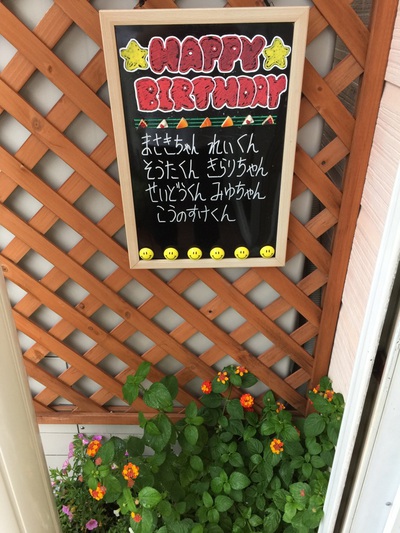 HAPPY
BIRTHDAY
まさきちゃん れいくん
そうたくん きらりちゃん
せいどうくん みゆちゃん
こうのすけくん